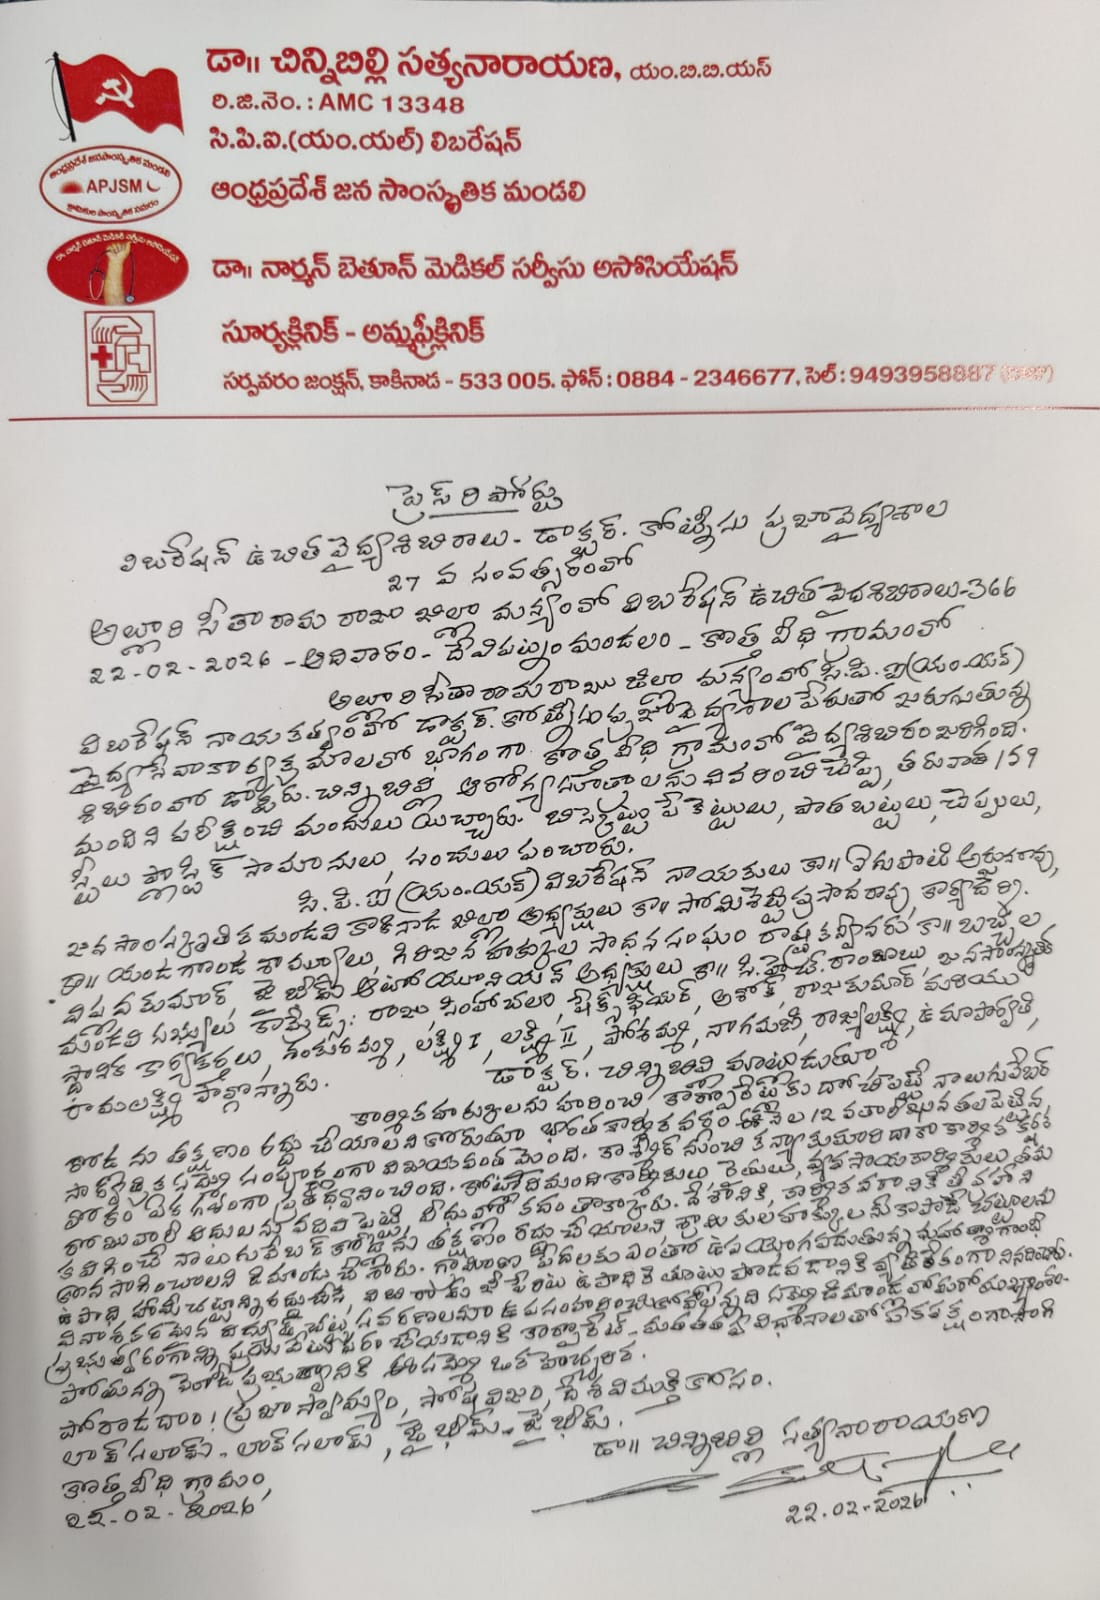 డా॥ చిన్నిబిల్లి సత్యనారాయణ, యం.బి.బి.యస్
రి.జి.నెం. : AMC 13348
సి.పి.ఐ.(యం.యల్) లిబరేషన్
ఆంధ్రప్రదేశ్ జన సాంస్కృతిక మండలి
APJSM
డా॥ నార్మన్ బెతూన్ మెడికల్ సర్వీసు అసోసియేషన్
సూర్యక్లినిక్ - అమ్మఫ్రీక్లినిక్
సర్పవరం జంక్షన్, కాకినాడ - 533 005. ఫోన్ : 0884 - 2346677, సెల్ : 9493958887
ప్రెస్ రిపోర్టు
లిబరేషన్ ఉచిత వైద్యశిబిరాలు - డాక్టర్. కోట్నీసు ప్రజావైద్యశాల
27 వ సంవత్సరంలో
అల్లూరి సీతారామ రాజు జిల్లా మన్యంలో లిబరేషన్ ఉచిత వైద్యశిబిరాలు-366
22-02-2026 - ఆదివారం - దేవిపట్నం మండలం - కొత్త వీధి గ్రామంలో
అల్లూరి సీతారామరాజు జిల్లా మన్యంలో సి.పి.ఐ(యం-యల్)
లిబరేషన్ నాయకత్వంలో డాక్టర్. కోట్నీసు ప్రజావైద్యశాల పేరుతో జరుగుతున్న
వైద్యసేవాకార్యక్రమాలలో భాగంగా కొత్త వీధి గ్రామంలో వైద్యశిబిరం జరిగింది.
శిబిరంలో డాక్టరు. చిన్నిబిల్లి ఆరోగ్యసూత్రాలను వివరించిచెప్పి, తరువాత 159
మందిని పరీక్షించి మందులు యిచ్చారు. బిస్కెట్టు పేకెట్టులు, పాతబట్టలు, చెప్పులు,
స్టీలు ప్లాస్టిక్ సామానులు, సంచులు పంచారు.
సి.పి.ఐ (యం-యల్) లిబరేషన్ నాయకులు కా॥ రేగుపాటి అర్జునరావు,
జన సాంస్కృతిక మండలి కాకినాడ జిల్లా అధ్యక్షులు కా॥ సోమిశెట్టి ప్రసాదరావు, కార్యదర్శి
కా॥ యండగొండ శాంబ్యూలు, గిరిజన హక్కుల సాధన సంఘం రాష్ట్ర కన్వీనరు కా॥ బచ్చల
విష్ణుకుమార్, జై భీమ్ ఆటోయూనియన్ అధ్యక్షులు కా॥ సి.హెచ్. రాంబాబు, జనసాంస్కృతిక
మండలి సభ్యులు కామ్రేడ్స్: రాజు సింహాచలం, షేక్స్ఫియర్, అశోక్, రాజకుమార్ మరియు
స్థానిక కార్యకర్తలు, గంకురమ్మ, లక్ష్మి I, లక్ష్మి II, పోశమ్మ, నాగమణి, రాజ్యలక్ష్మి, ఉమాపార్వతి,
రామలక్ష్మి పాల్గొన్నారు.
డాక్టర్. చిన్నిబిల్లి మాట్లాడుతూ
కార్మికహక్కులను హరించి కార్పొరేట్లకు దోచిపెట్టే నాలుగులేబర్
కోడ్ ను తక్షణం రద్దు చేయాలని కోరుతూ భారత కార్మిక వర్గం ఈ నెల 12 వ తారీఖున తలపెట్టిన
సార్వత్రిక సమ్మె సంపూర్ణంగా విజయవంతమైంది. కాశ్మీర్ నుంచి కన్యాకుమారి దాకా కార్మిక
లోకం ఏక గళంగా ప్రతిధ్వనించింది. కోట్లాదిమంది కార్మికులు రైతులు, వ్యవసాయకార్మికులు తమ
రోజువారీ పనులను వదిలిపెట్టి, వీధులలో కదం తొక్కారు. దేశానికి, కార్మికవర్గానికి
కలిగించే నాలుగులేబర్ కోడ్ ను తక్షణం రద్దు చేయాలని శ్రామికులహక్కులను కాపాడే చట్టాలను
కొనసాగించాలని డిమాండు చేశారు. గ్రామీణ పేదలకు ఎంతో ఉపయోగపడుతున్న మహాత్మాగాంధీ
ఉపాధి హామీ చట్టాన్ని రద్దుచేసి,
వినాశకరమైన విద్యుత్ చట్ట సవరణలను ఉపసంహరించుకోవాలన్నది
పోతున్న మోడీ ప్రభుత్వానికి ఈ సమ్మె ఒక హెచ్చరిక.
పోరాడదాం! ప్రజాస్వామ్యం, సోషలిజం, దేశవిముక్తి కోసం.
లాల్ సలామ్ - లాల్ సలామ్, జై భీమ్ - జై భీమ్.
డా॥ చిన్నిబిల్లి సత్యనారాయణ
కొత్త వీధి గ్రామం,
22-02-2026
22.02-2026